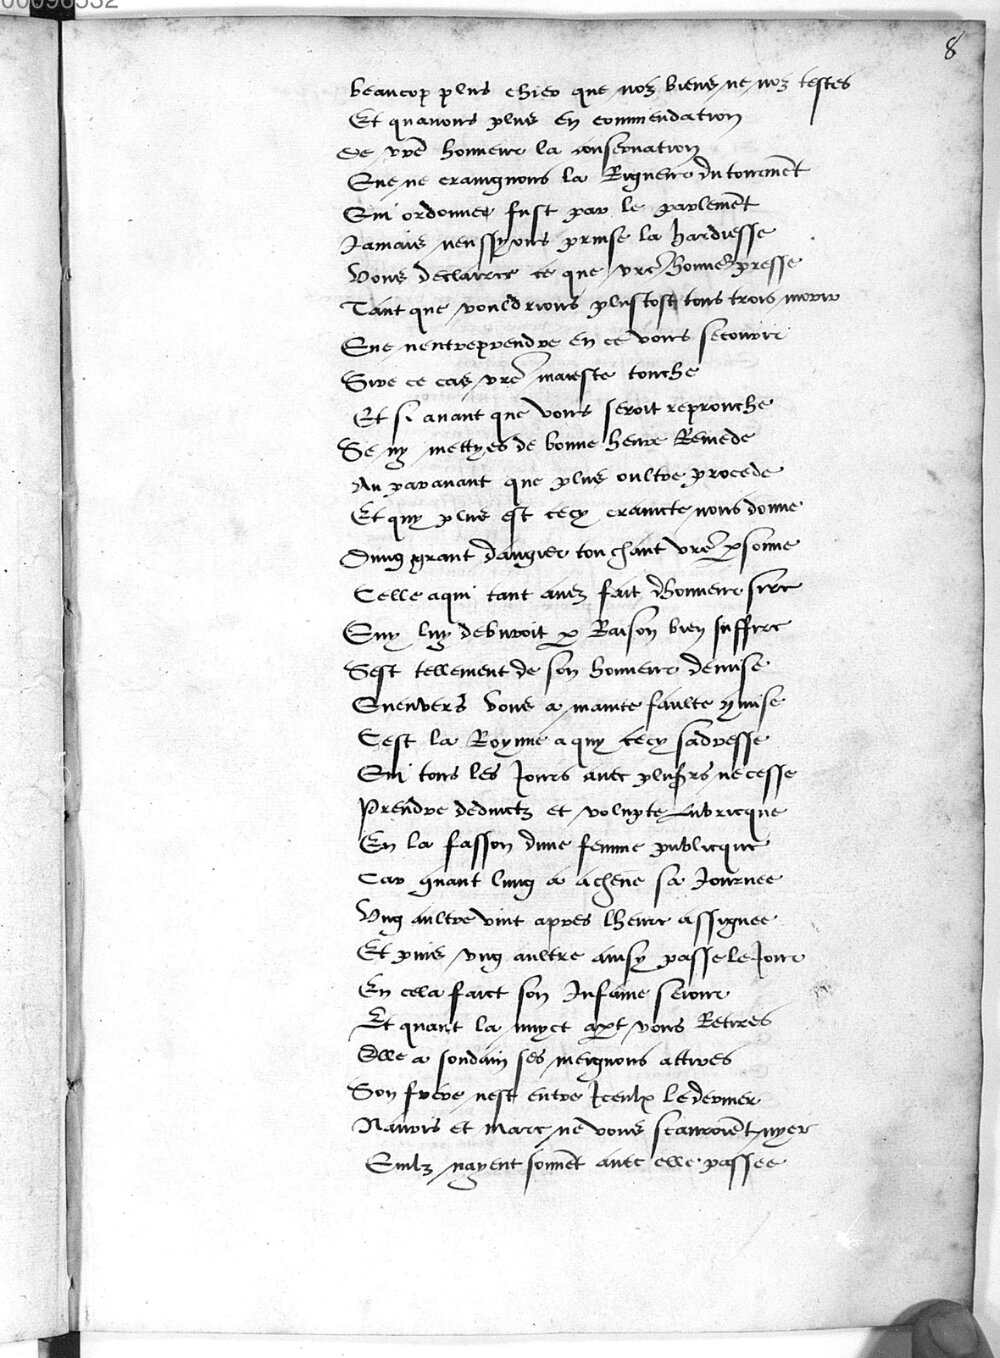 00096332
8
beaucop plus chier que noz biens ne noz testes
Et quavons plus en commendation
De vre honneur la conservation
Que ne craingnons la Rigueur du tourment
Qui ordonnee fust par le parlement
Jamais neussyons prinse la hardiesse
Vous declairer ce que vre honneur presse
Tant que vouldrions plustost tous trois mourir
Que nentreprendre en ce vous secourir
Sire ce cas vre maieste touche
Et si avant que vous seroit reprouche
Se ny mettyes de bonne heure Remede
Au paravant que plus oultre procede
Et quy plus est cecy craincte nous donne
Dung grant dangier touchant vre psonne
Celle a qui tant avez fait dhonneur sire
Quy luy debvroit p Raison bien suffire
Sest tellement de son honneur demise
Quenvers vous a mainte faulte ymise
Cest la Royne a quy cecy sadresse
Qui tous les Jours avec plusrs ne cesse
Prendre deduictz et volupte Lubricque
En la fasson dune femme publicque
Car quant lung a acheve sa Journee
Ung aultre vint apres lheure assignee
Et puis ung aultre ainsy passe le Jour
En cela faict son Infame seiour
Et quant la nuyct apt vous Retires
Elle a soudain ses meignons attires
Son frere nest entre Iceulx le dernier
Nauris et Marc ne vous scauroient nyer
Quilz nayent souvet avec elle passee